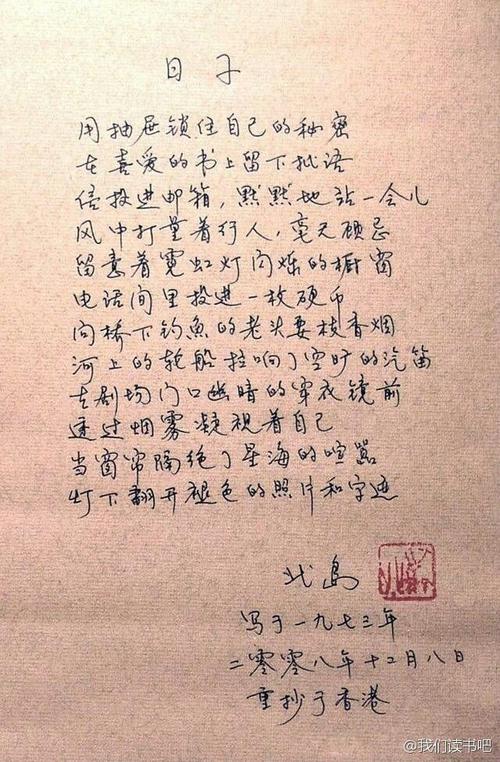 日子
用抽屉锁住自己的秘密
在喜爱的书上留下批语
信投进邮箱，默默地站一会儿
风中打量着行人，毫无顾忌
留意着霓虹灯闪烁的橱窗
电话间里投进一枚硬币
向桥下钓鱼的老头要枝香烟
河上的轮船拉响了空旷的汽笛
在剧场门口幽暗的穿衣镜前
透过烟雾凝视着自己
当窗帘隔绝了星海的喧嚣
灯下翻开褪色的照片和字迹
北岛
写于一九七三年
二零零八年十二月八日
重抄于香港
@我们读书吧